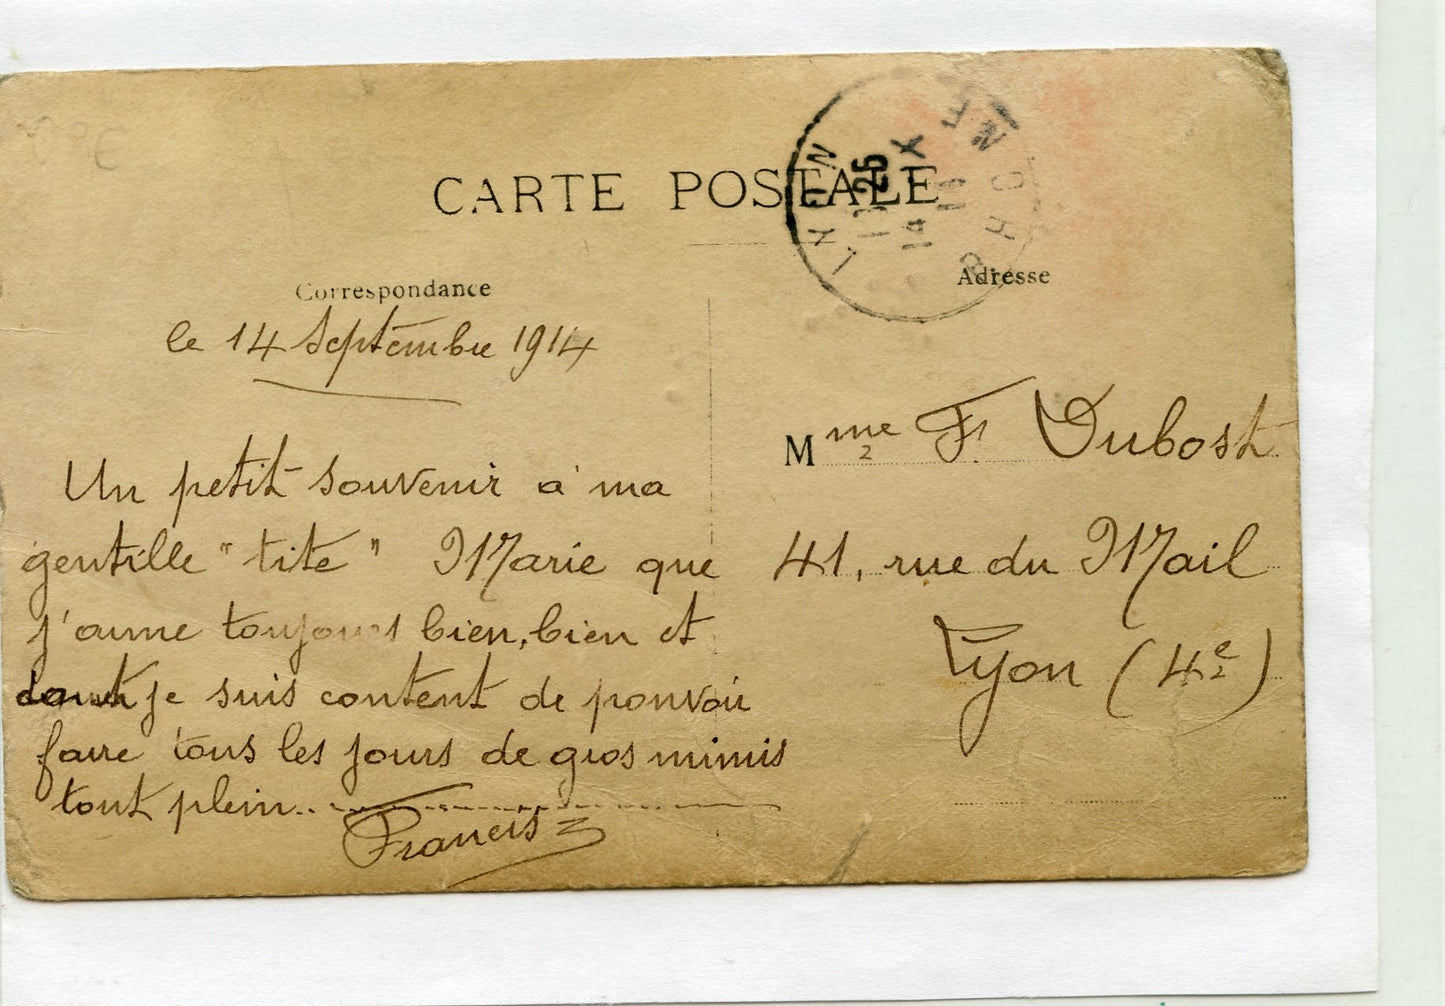 CARTE POSTALE
LYON
RHONE
13 25
14
14
Correspondance
le 14 Septembre 1914
Un petit souvenir à ma
gentille "tite" Marie que
j'aime toujours bien, bien et
dont je suis content de pouvoir
faire tous les jours de gros mimis
tout plein..
Francis
Adresse
Mme F. Dubost
41, rue du Mail
Lyon (4e)